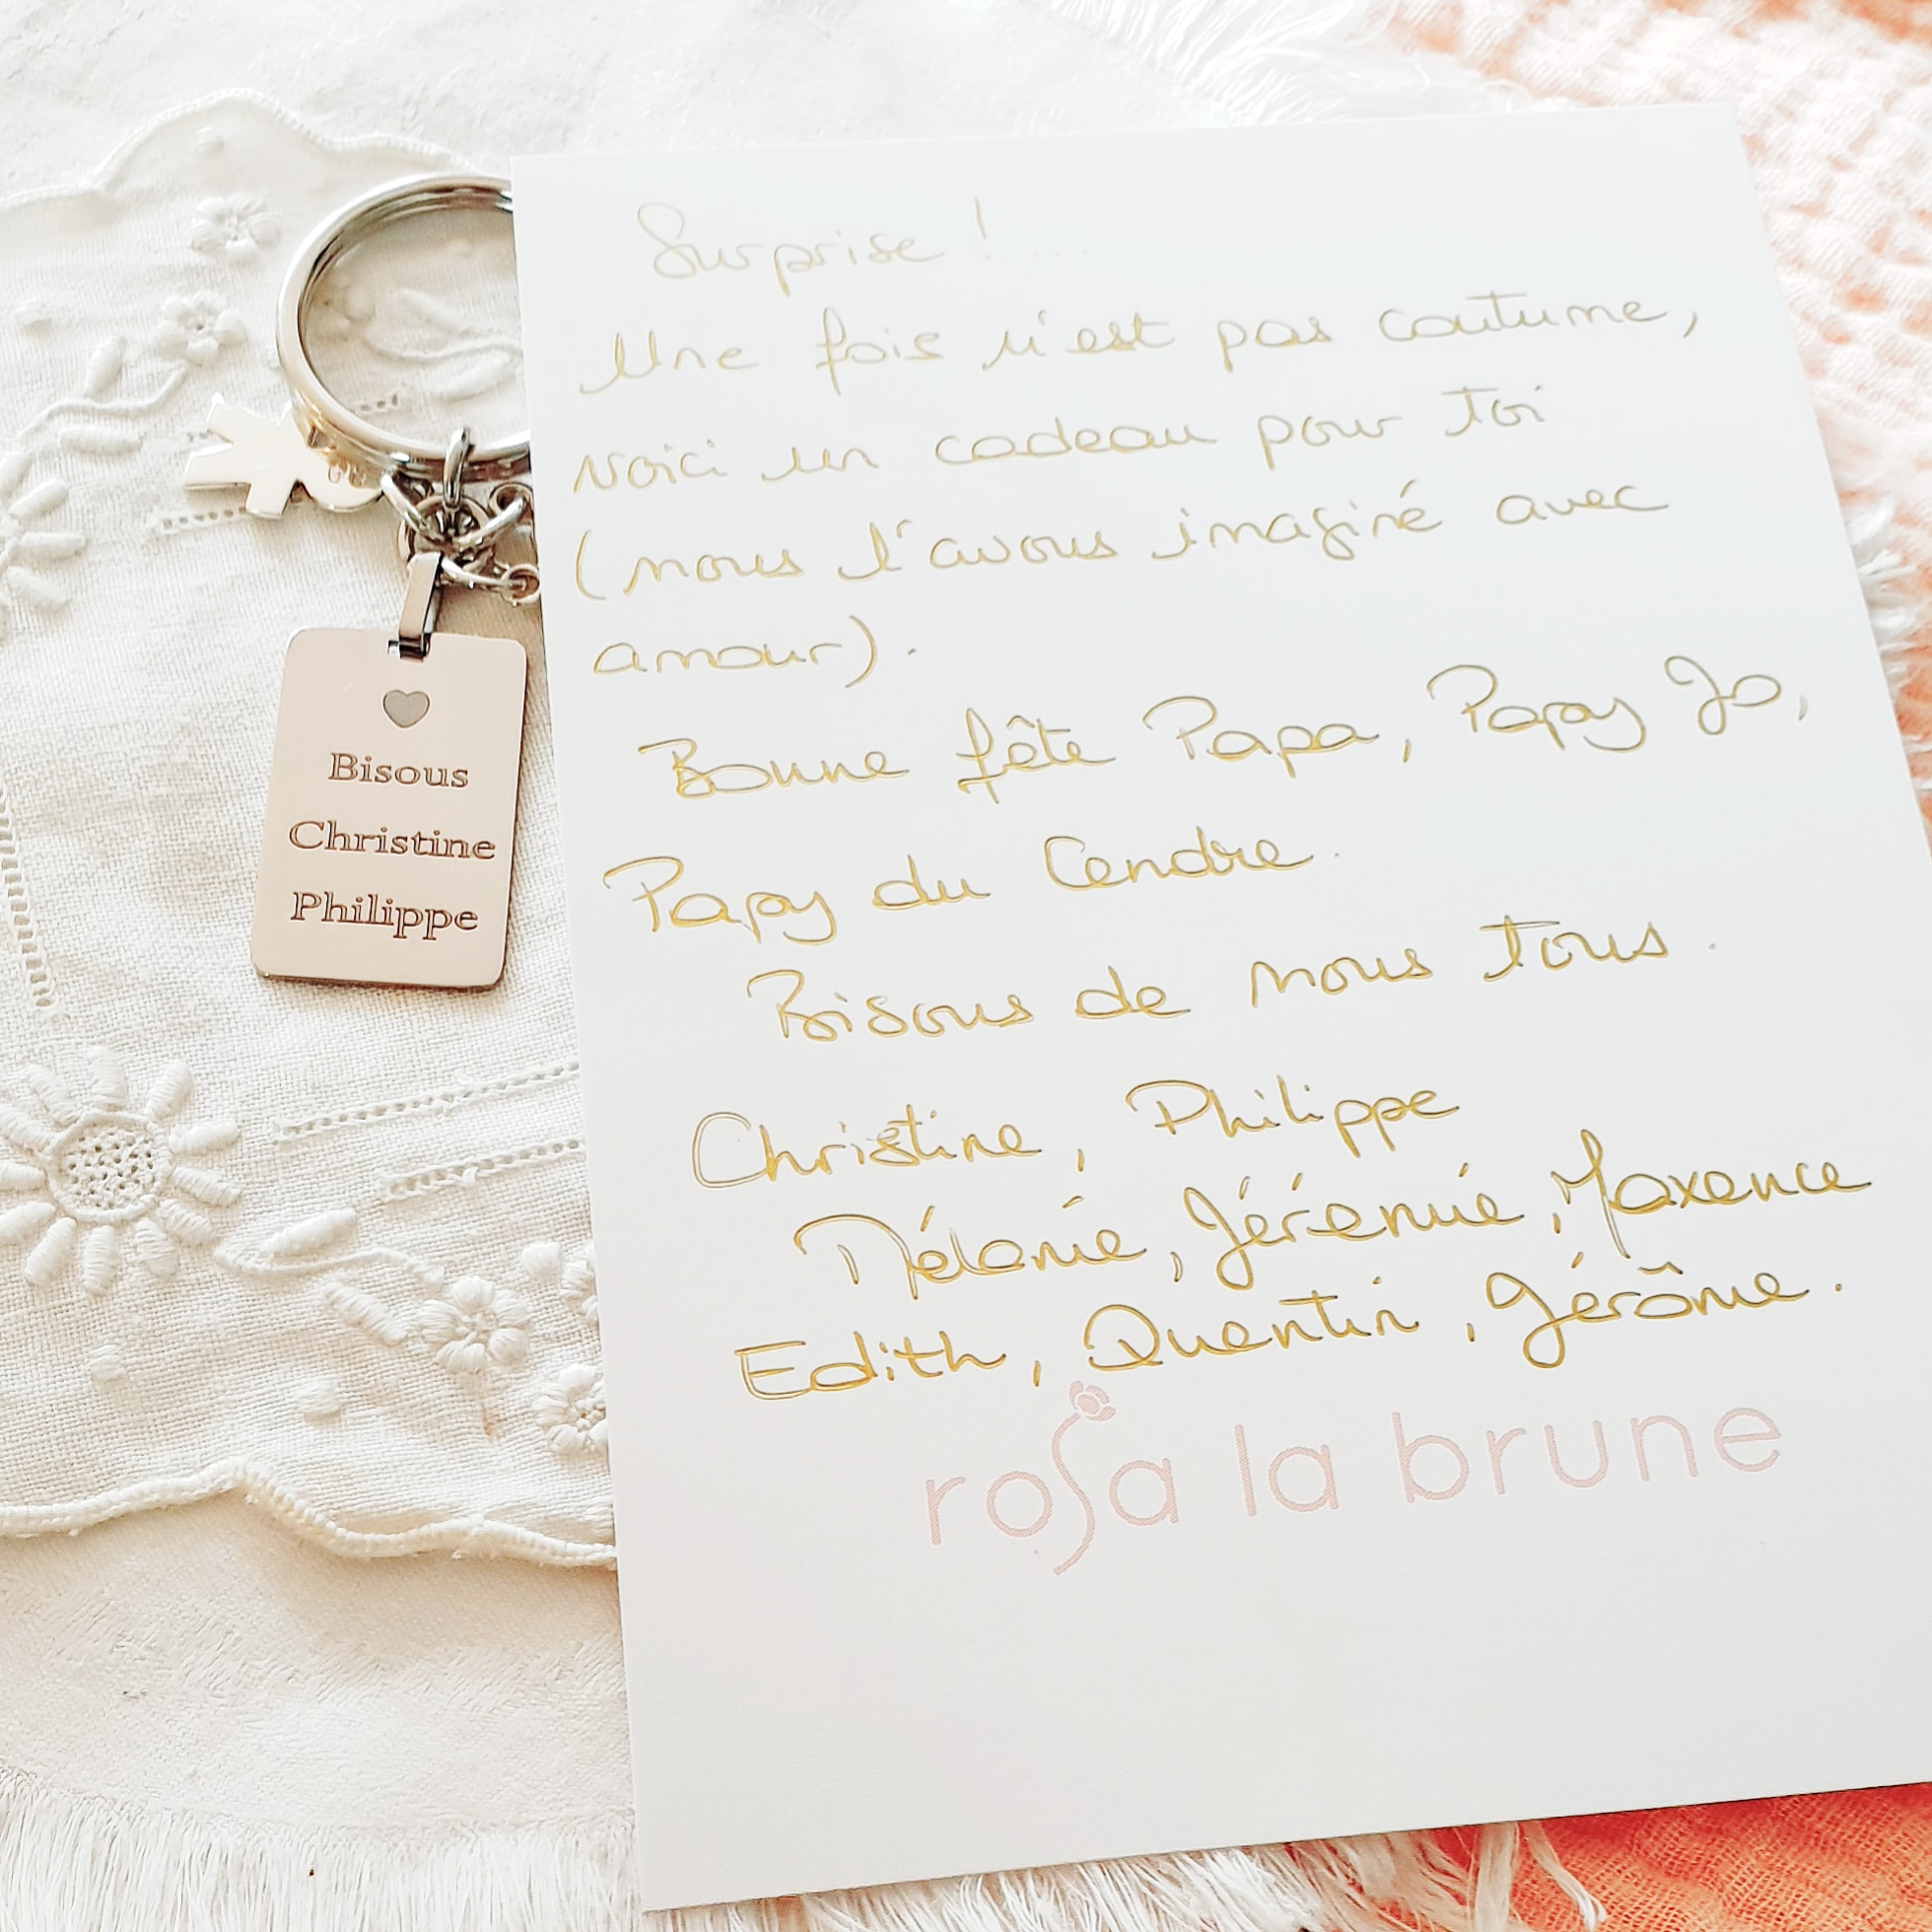 Bisous
Christine
Philippe
Surprise ! ...
Une fois n'est pas coutume,
voici un cadeau pour toi
(nous l'avons imaginé avec
amour).
Bonne fête Papa, Papy Jo,
Papy du Cendre.
Bisous de nous tous.
Christine, Philippe
Mélanie, Jérémie, Maxence
Edith, Quentin, Jérôme.
rosa la brune